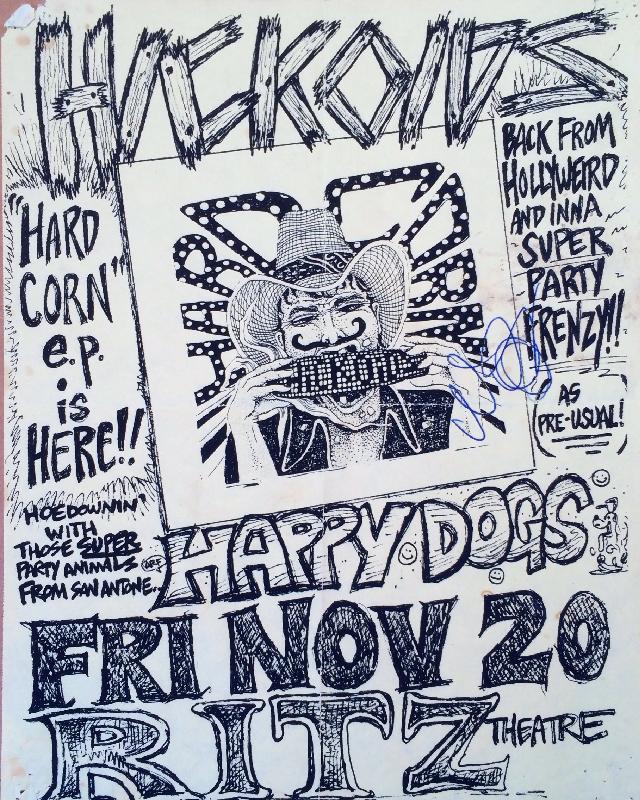 HICKOIDS
"HARD
CORN"
e.p.
is
HERE!!
HARD CORN
BACK FROM
HOLLYWEIRD
AND INNA
SUPER
PARTY
FRENZY!!
AS
PRE-USUAL!
HOEDOWNIN'
WITH
THOSE SUPER
PARTY ANIMALS
FROM SAN ANTONE.
ARF
HAPPY DOGS
FRI NOV 20
RITZ THEATRE